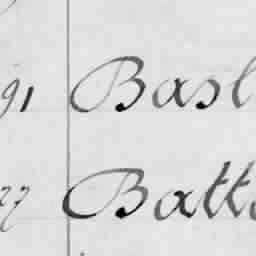 91 Basl
27 Batt